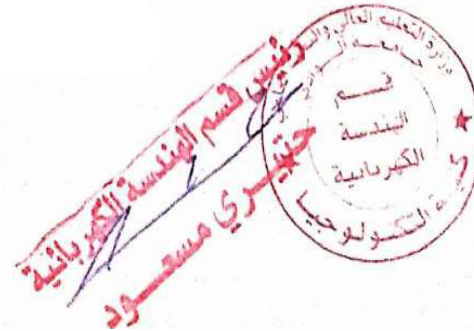 رئيس قسم الهندسة الكهربائية
مسعود
وزارة التعليم العالي
جامعة الوادي
قسم
الهندسة
الكهربائية
التكنولوجيا